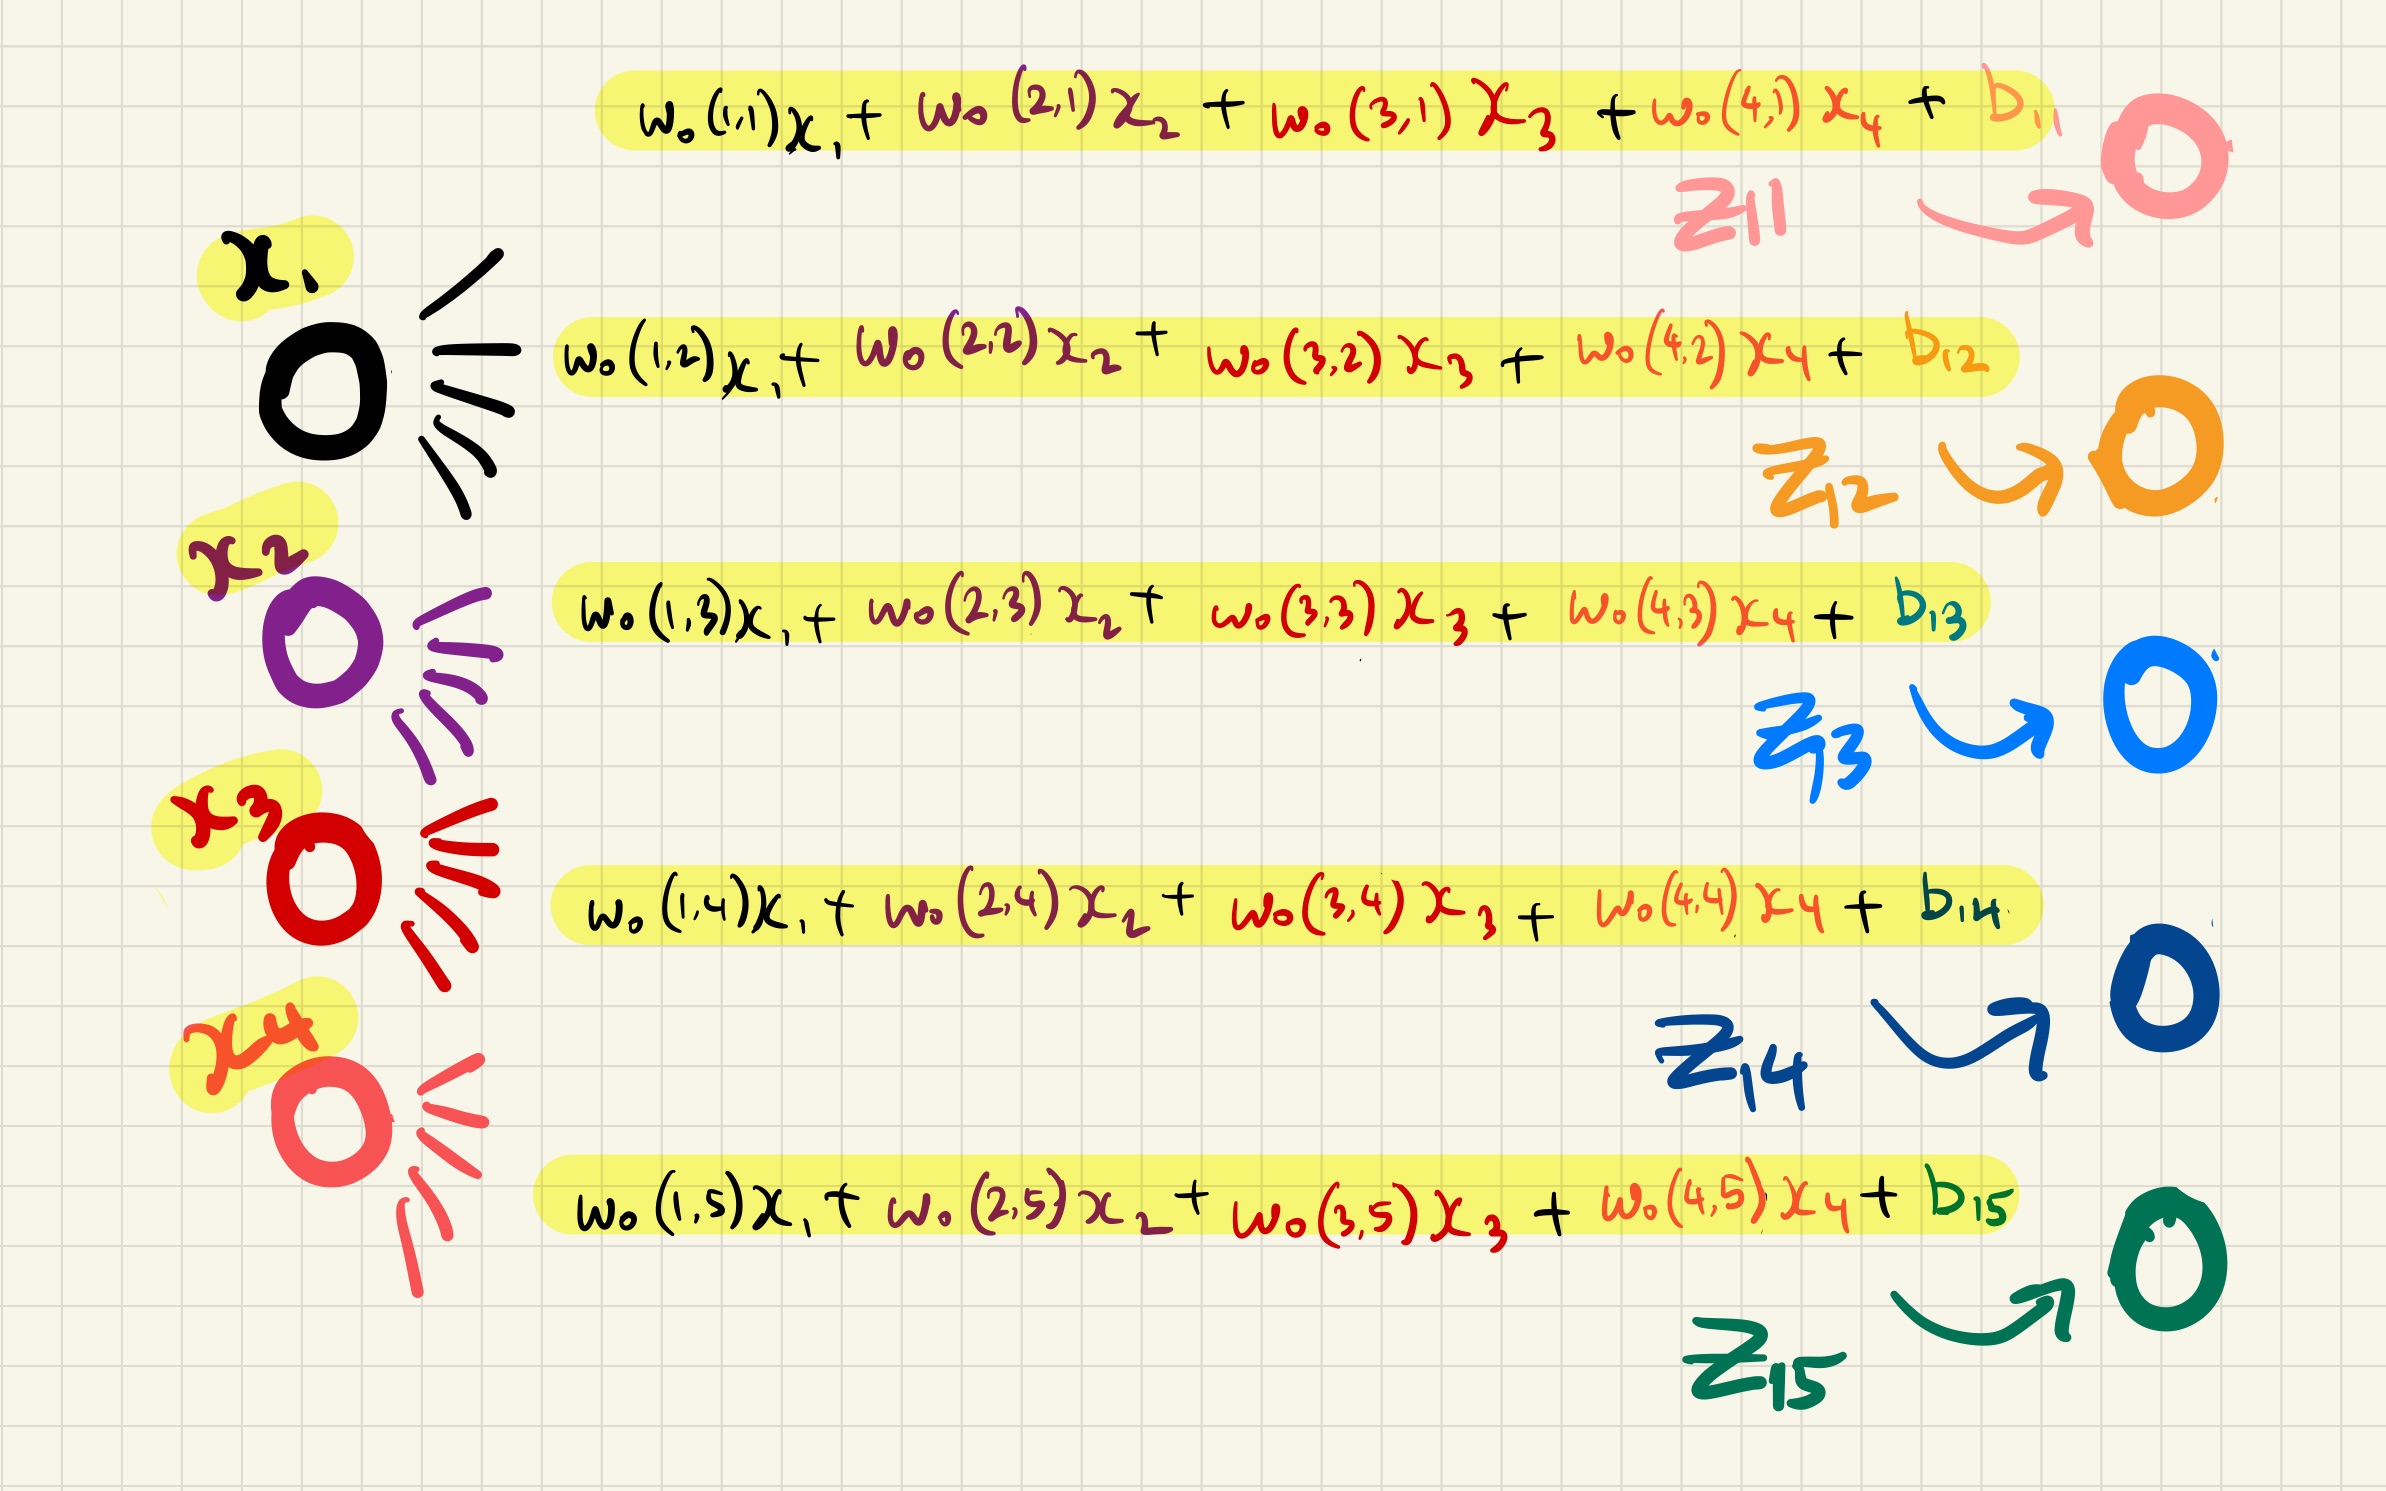 w₀(1,1)x₁ + w₀(2,1)x₂ + w₀(3,1)x₃ + w₀(4,1)x₄ + b₁₁
z₁₁
x₁
w₀(1,2)x₁ + w₀(2,2)x₂ + w₀(3,2)x₃ + w₀(4,2)x₄ + b₁₂
z₁₂
x₂
w₀(1,3)x₁ + w₀(2,3)x₂ + w₀(3,3)x₃ + w₀(4,3)x₄ + b₁₃
z₁₃
x₃
w₀(1,4)x₁ + w₀(2,4)x₂ + w₀(3,4)x₃ + w₀(4,4)x₄ + b₁₄
x₄
z₁₄
w₀(1,5)x₁ + w₀(2,5)x₂ + w₀(3,5)x₃ + w₀(4,5)x₄ + b₁₅
z₁₅